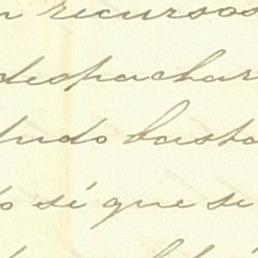 n recursos
despachar
dudo basta
o sé que si